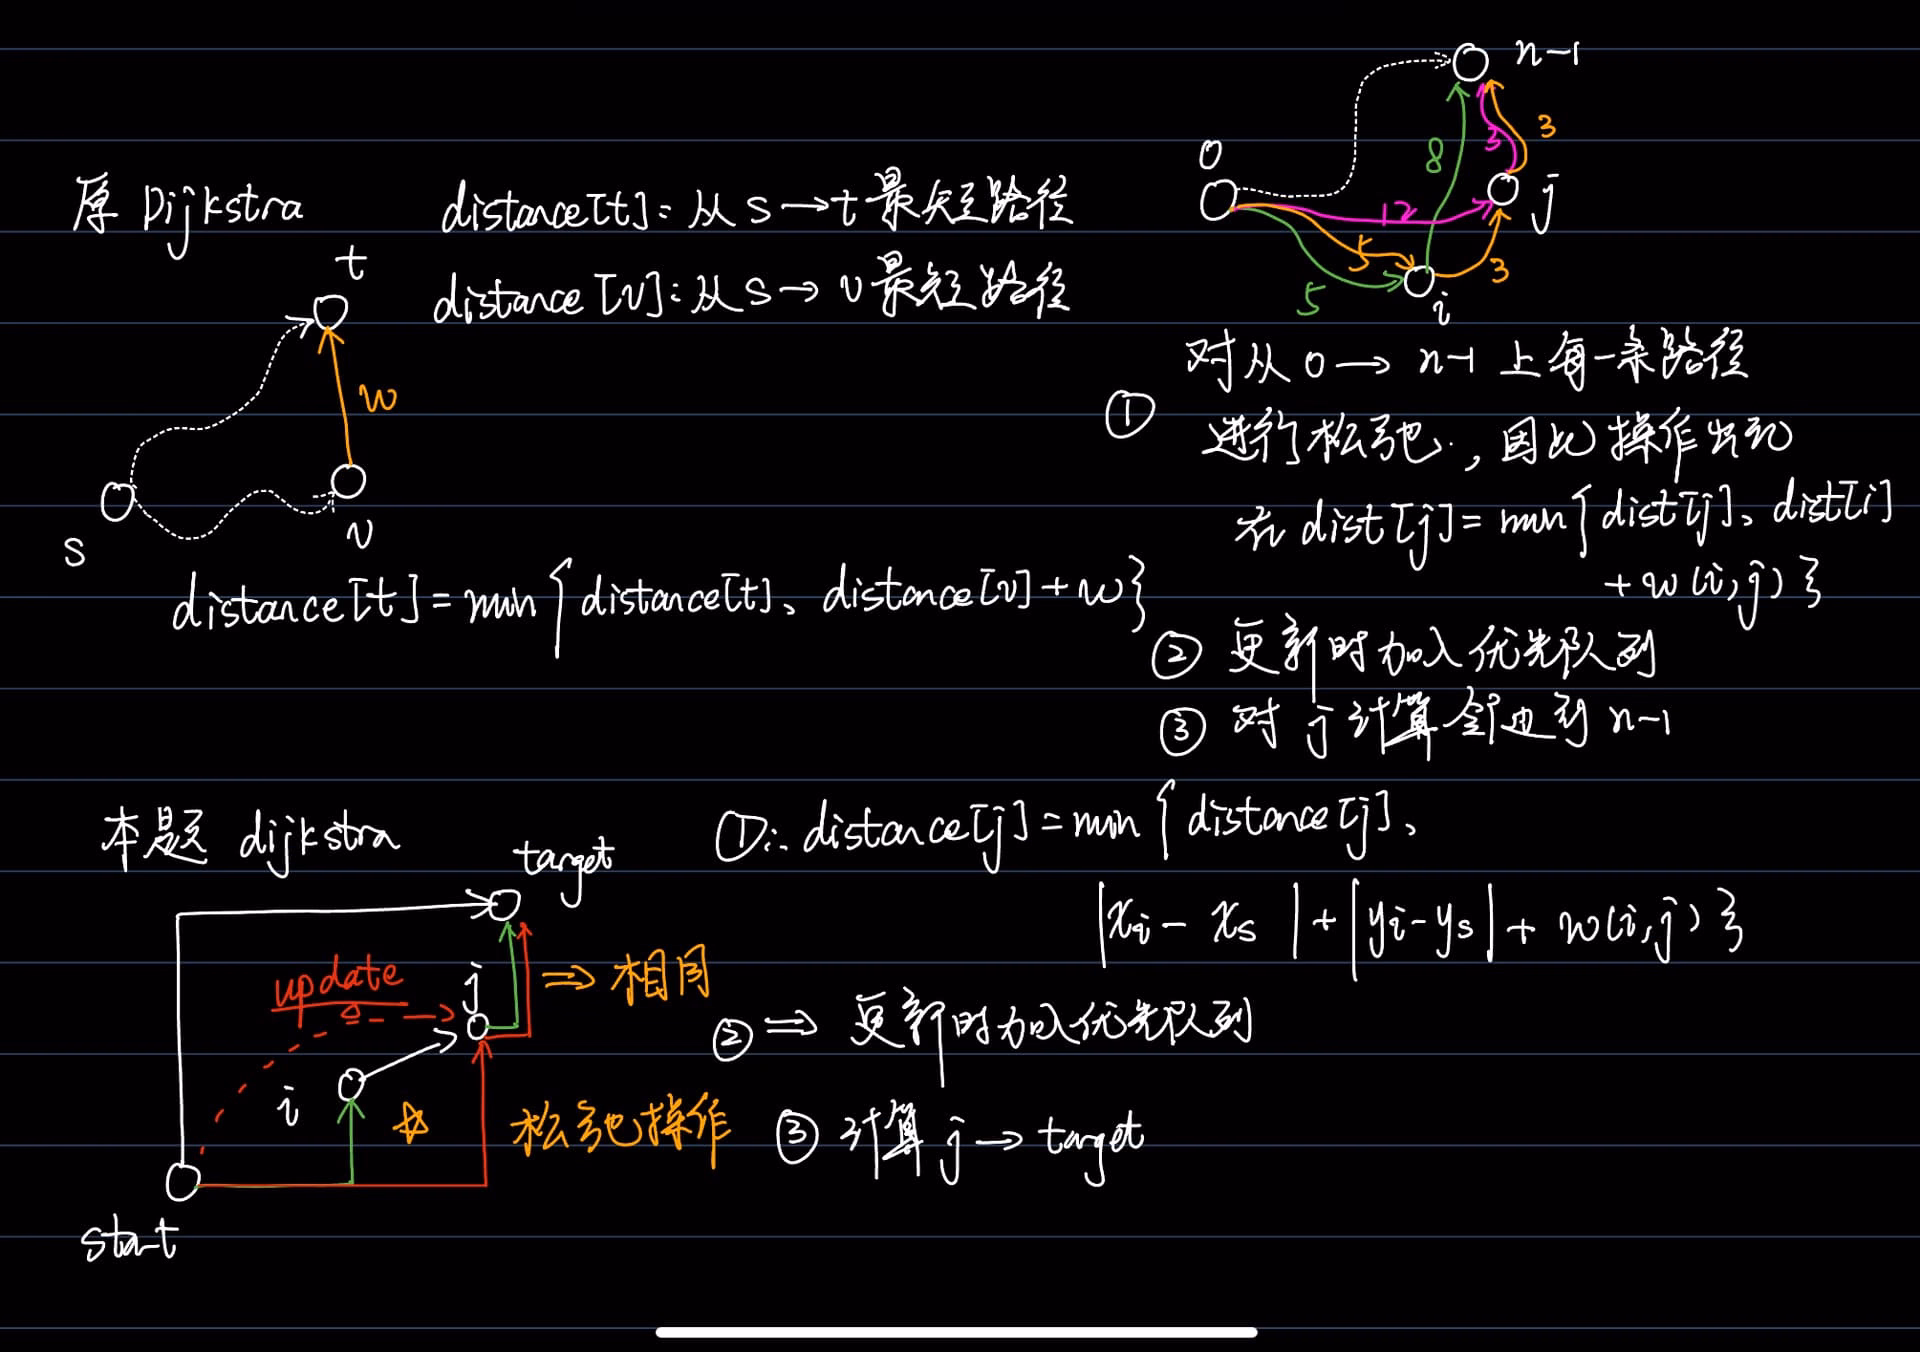 原 Dijkstra
distance[t]: 从 s → t 最短路径
distance[v]: 从 s → v 最短路径
t
w
s
v
distance[t] = min{distance[t]、distance[v] + w}
n-1
0
8
3
3
j
12
5
5
3
i
对从 0 → n-1 上每一条路径
① 进行松弛., 因此操作出现
在 dist[j] = min{dist[j]、dist[i]
+ w(i,j)}
② 更新时加入优先队列
③ 对 j 计算邻边到 n-1
本题 dijkstra
target
update
j
⇒ 相同
i
☆
松弛操作
start
①∴ distance[j] = min{distance[j]、
|xi - xs| + |yi - ys| + w(i,j)}
② ⇒ 更新时加入优先队列
③ 计算 j → target